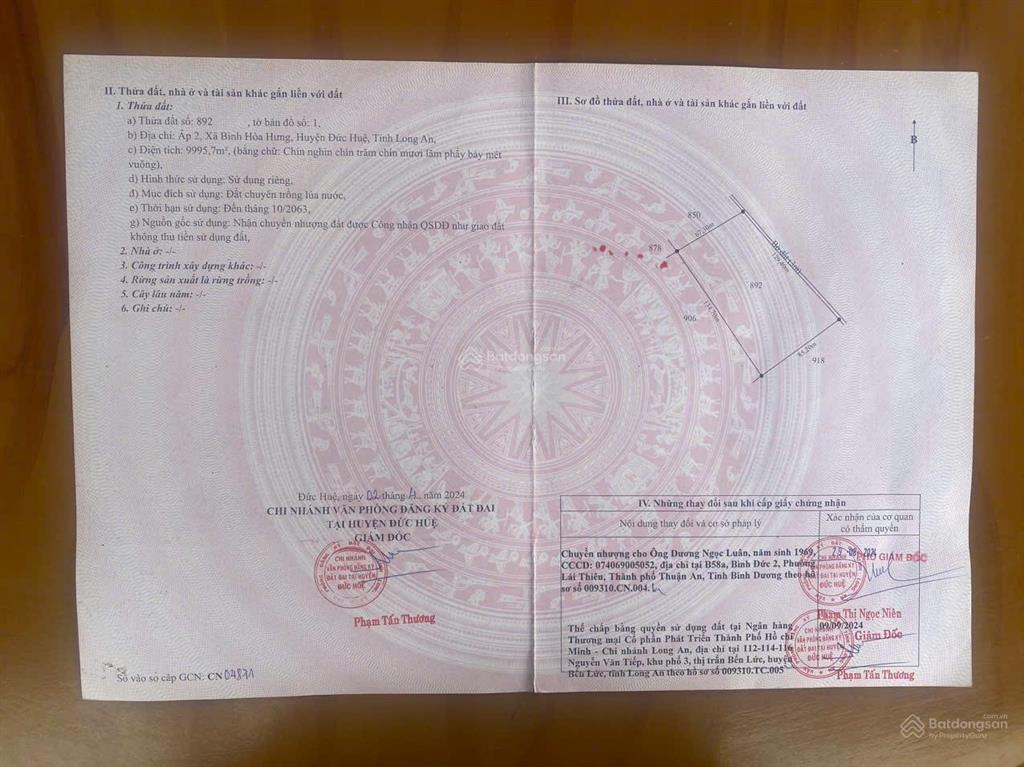 II. Thửa đất, nhà ở và tài sản khác gắn liền với đất
1. Thửa đất:
a) Thửa đất số: 892 , tờ bản đồ số: 1,
b) Địa chỉ: Ấp 2, Xã Bình Hòa Hưng, Huyện Đức Huệ, Tỉnh Long An,
c) Diện tích: 9995,7m², (bằng chữ: Chín nghìn chín trăm chín mươi lăm phẩy bảy mét
vuông),
d) Hình thức sử dụng: Sử dụng riêng,
đ) Mục đích sử dụng: Đất chuyên trồng lúa nước,
e) Thời hạn sử dụng: Đến tháng 10/2063,
g) Nguồn gốc sử dụng: Nhận chuyển nhượng đất được Công nhận QSDĐ như giao đất
không thu tiền sử dụng đất,
2. Nhà ở: -/-
3. Công trình xây dựng khác: -/-
4. Rừng sản xuất là rừng trồng: -/-
5. Cây lâu năm: -/-
6. Ghi chú: -/-
Đức Huệ, ngày 02 tháng 4 năm 2024
CHI NHÁNH VĂN PHÒNG ĐĂNG KÝ ĐẤT ĐAI
TẠI HUYỆN ĐỨC HUỆ
GIÁM ĐỐC
CHI NHÁNH
VĂN PHÒNG ĐĂNG KÝ
ĐẤT ĐAI TẠI HUYỆN
ĐỨC HUỆ
Phạm Tấn Thương
Số vào sổ cấp GCN: CN04871
III. Sơ đồ thửa đất, nhà ở và tài sản khác gắn liền với đất
B
850
878
892
906
114,70m
85,20m
918
Batdongsan
IV. Những thay đổi sau khi cấp giấy chứng nhận
Nội dung thay đổi và cơ sở pháp lý
Xác nhận của cơ quan
có thẩm quyền
Chuyển nhượng cho Ông Dương Ngọc Luân, năm sinh 1969,
CCCD: 074069005052, địa chỉ tại B58a, Bình Đức 2, Phường
Lái Thiêu, Thành phố Thuận An, Tỉnh Bình Dương theo hồ
sơ số 009310.CN.004.
PHÓ GIÁM ĐỐC
VĂN PHÒNG ĐĂNG KÝ
ĐẤT ĐAI TẠI HUYỆN
ĐỨC HUỆ
Phạm Thị Ngọc Niên
Thế chấp bằng quyền sử dụng đất tại Ngân hàng
Thương mại Cổ phần Phát Triển Thành Phố Hồ chí
Minh - Chi nhánh Long An, địa chỉ tại 112-114-116
Nguyễn Văn Tiếp, khu phố 3, thị trấn Bến Lức, huyện
Bến Lức, tỉnh Long An theo hồ sơ số 009310.TC.005
09/09/2024
Giám Đốc
CHI NHÁNH
VĂN PHÒNG ĐĂNG KÝ
ĐẤT ĐAI TẠI HUYỆN
ĐỨC HUỆ
Phạm Tấn Thương
Batdongsan
.com.vn
by PropertyGuru